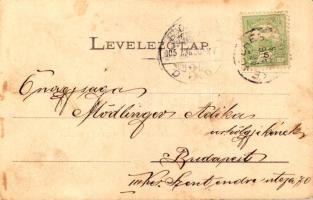 LEVELEZŐ-LAP.
Őnagysága
Mödlinger Adika
úrhölgyikének
Budapest
Szent endre utcza 70